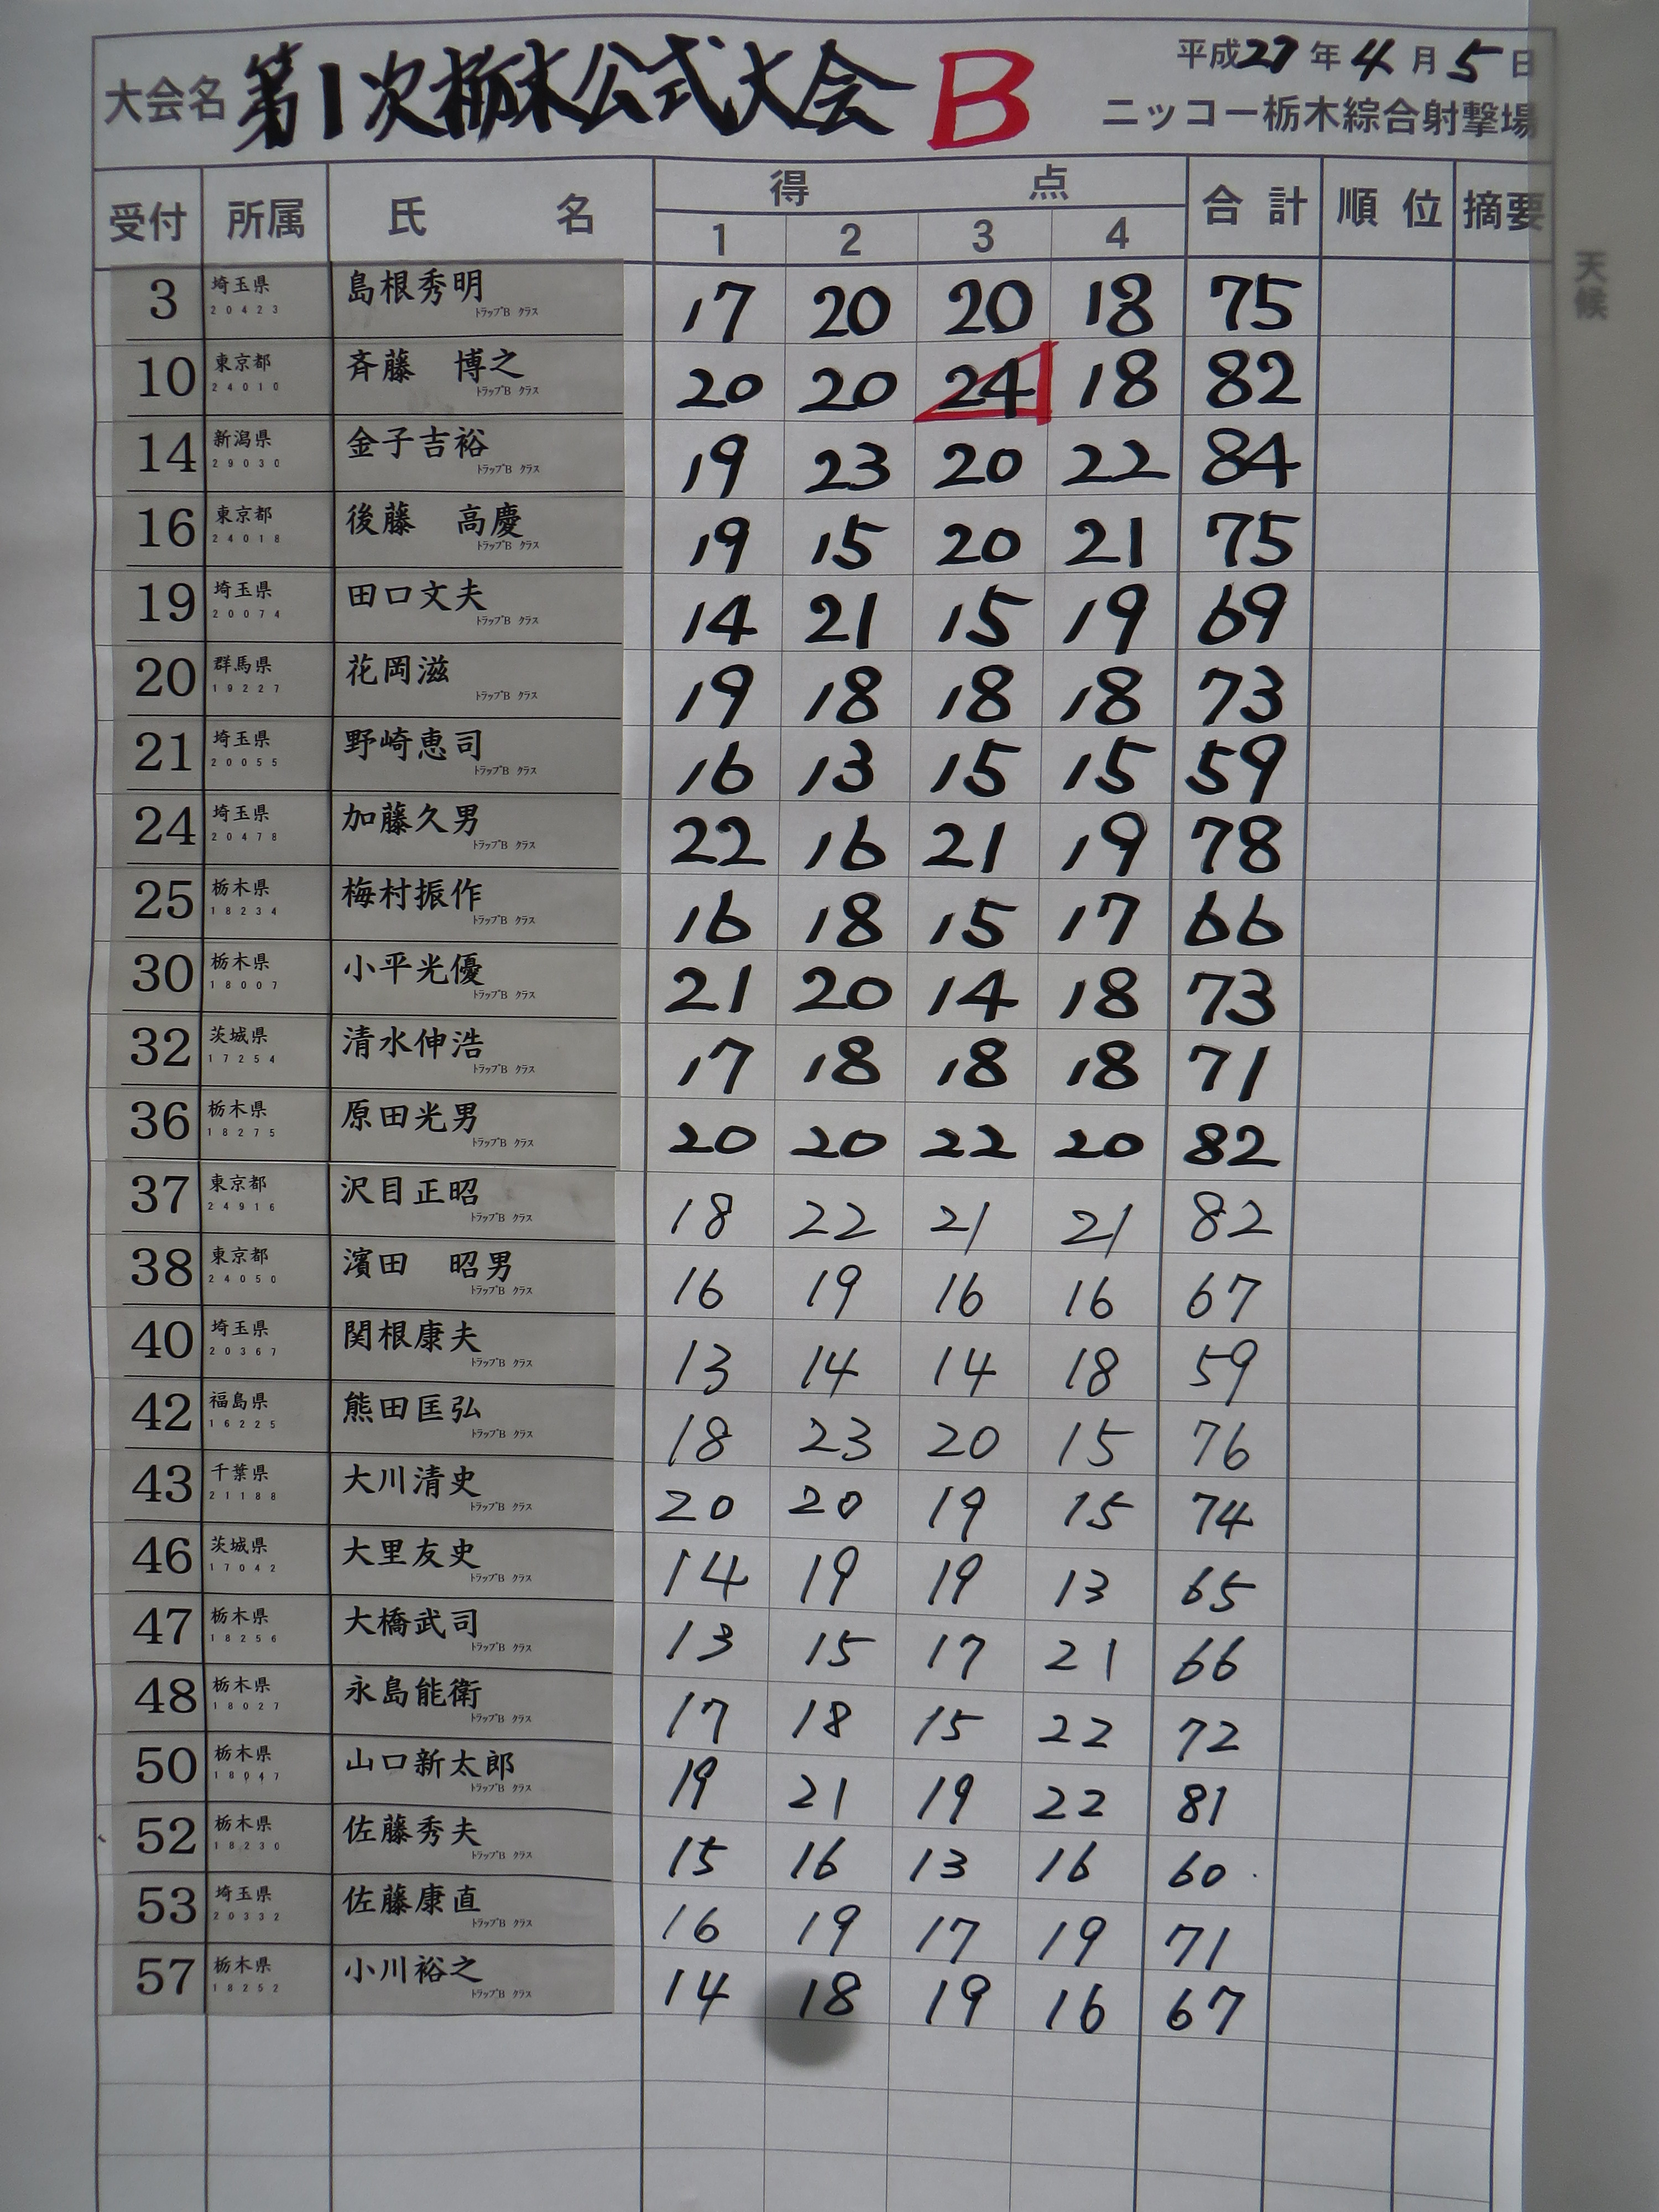 大会名 第1次栃木公式大会 B 平成27年4月5日
ニッコー栃木綜合射撃場
受付 所属 氏名 得点 合計 順位 摘要
1 2 3 4
天候
3 埼玉県 20423 島根秀明 トラップB クラス 17 20 20 18 75
10 東京都 24010 斉藤 博之 トラップB クラス 20 20 24 18 82
14 新潟県 29030 金子吉裕 トラップB クラス 19 23 20 22 84
16 東京都 24018 後藤 高慶 トラップB クラス 19 15 20 21 75
19 埼玉県 20074 田口文夫 トラップB クラス 14 21 15 19 69
20 群馬県 19227 花岡滋 トラップB クラス 19 18 18 18 73
21 埼玉県 20055 野崎恵司 トラップB クラス 16 13 15 15 59
24 埼玉県 20478 加藤久男 トラップB クラス 22 16 21 19 78
25 栃木県 18234 梅村振作 トラップB クラス 16 18 15 17 66
30 栃木県 18007 小平光優 トラップB クラス 21 20 14 18 73
32 茨城県 17254 清水伸浩 トラップB クラス 17 18 18 18 71
36 栃木県 18275 原田光男 トラップB クラス 20 20 22 20 82
37 東京都 24916 沢目正昭 トラップB クラス 18 22 21 21 82
38 東京都 24050 濱田 昭男 トラップB クラス 16 19 16 16 67
40 埼玉県 20367 関根康夫 トラップB クラス 13 14 14 18 59
42 福島県 16225 熊田匡弘 トラップB クラス 18 23 20 15 76
43 千葉県 21188 大川清史 トラップB クラス 20 20 19 15 74
46 茨城県 17042 大里友史 トラップB クラス 14 19 19 13 65
47 栃木県 18256 大橋武司 トラップB クラス 13 15 17 21 66
48 栃木県 18027 永島能衛 トラップB クラス 17 18 15 22 72
50 栃木県 18047 山口新太郎 トラップB クラス 19 21 19 22 81
52 栃木県 18230 佐藤秀夫 トラップB クラス 15 16 13 16 60
53 埼玉県 20332 佐藤康直 トラップB クラス 16 19 17 19 71
57 栃木県 18252 小川裕之 トラップB クラス 14 18 19 16 67